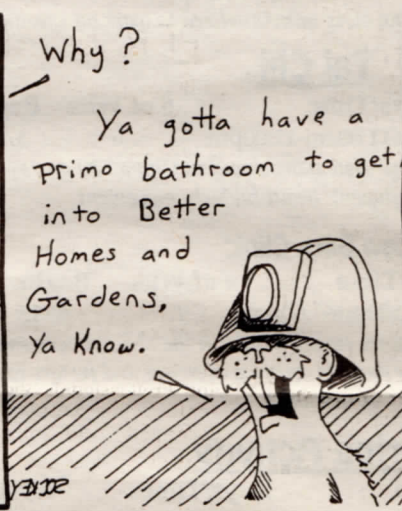 Why?
Ya gotta have a
primo bathroom to get
into Better
Homes and
Gardens,
Ya Know.